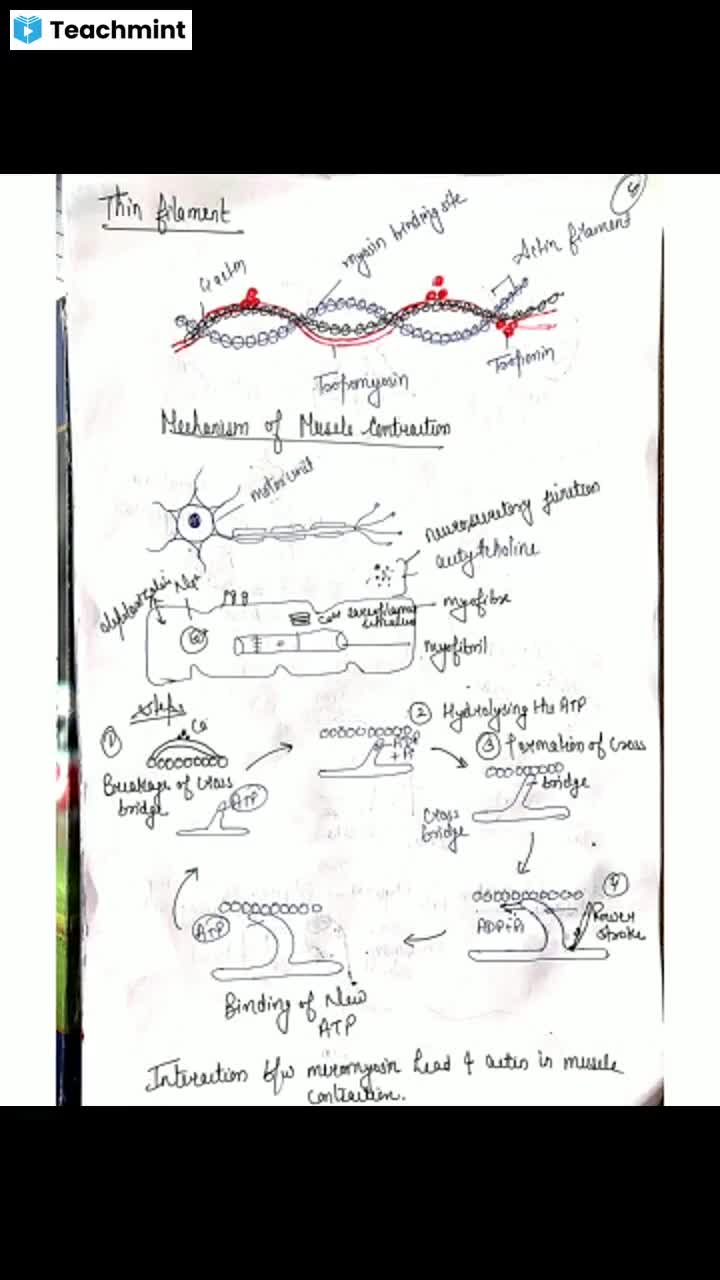 Teachmint
Thin filament
G actin
myosin binding site
Actin filament
Tropomyosin
Troponin
Mechanism of Muscle Contraction
motor unit
acetylcholine
Na+
myofibril
Steps
① Ca
Breakage of Cross
bridge
ATP
② Hydrolysing the ATP
ADP
+ Pi
③ Formation of Cross
bridge
Cross
bridge
④
Power
stroke
ADP+Pi
ATP
Binding of New
ATP
Interaction b/w meromyosin head & actin in muscle
contraction.